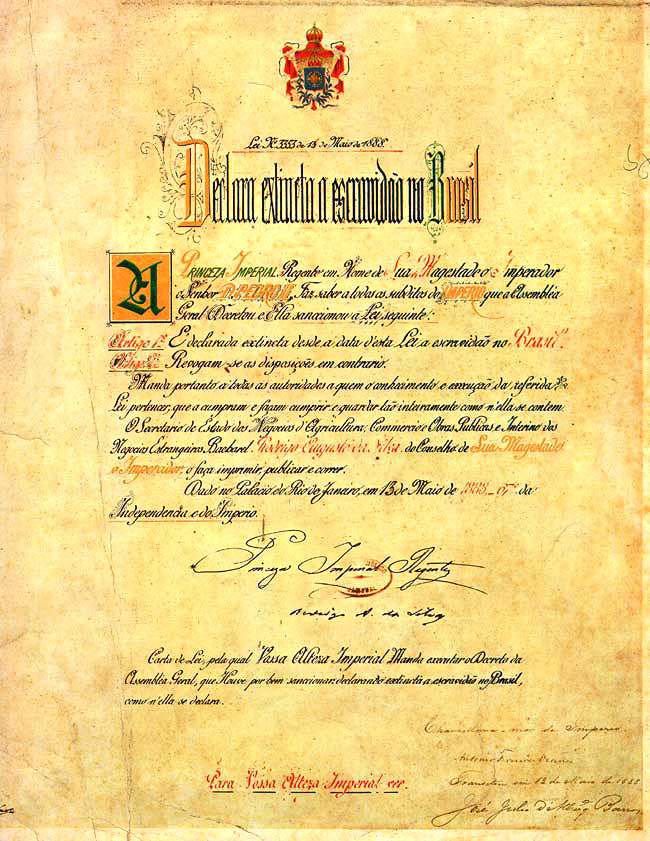 Lei Nº 3353 de 13 de Maio de 1888.
Declara extincta a escravidão no Brasil
A PRINCEZA IMPERIAL Regente em Nome de Sua Magestade o Imperador
o Senhor D. PEDRO II, Faz saber a todos os subditos do IMPERIO que a Assembléa
Geral Decretou e Ella sanccionou a Lei seguinte:
Artigo 1º É declarada extincta desde a data d'esta Lei a escravidão no Brasil.
Artigo 2º Revogam-se as disposições em contrario.
Manda portanto a todas as autoridades a quem o conhecimento e execução da referida
Lei pertencer, que a cumpram e façam cumprir e guardar tão inteiramente como n'ella se contem.
O Secretario de Estado dos Negocios d'Agricultura, Commercio e Obras Publicas e Interino dos
Negocios Estrangeiros Bacharel Rodrigo Augusto da Silva do Conselho de Sua Magestade
o Imperador, o faça imprimir, publicar e correr.
Dado no Palacio do Rio de Janeiro, em 13 de Maio de 1888 - 67º da
Independencia e do Imperio.
Princeza Imperial Regente
Rodrigo A. da Silva
Carta de Lei, pela qual Vossa Alteza Imperial Manda executar o Decreto da
Assembléa Geral, que Houve por bem sanccionar declarando extincta a escravidão no Brasil,
como n'ella se declara.
Para Vossa Alteza Imperial ver.
Chancellaria mór do Imperio
Antonio Ferreira Vianna
Transitou em 13 de Maio de 1888
José Julio d'Albuqº Barros